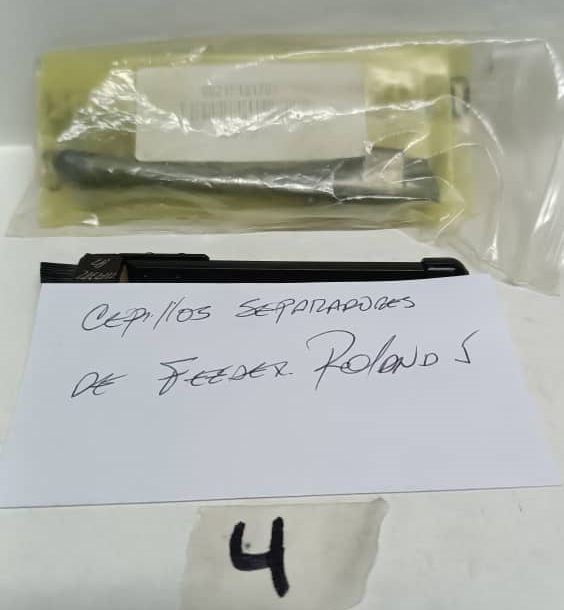 CEPILLOS SEPARADORES
DE FEEDER ROLAND S
4